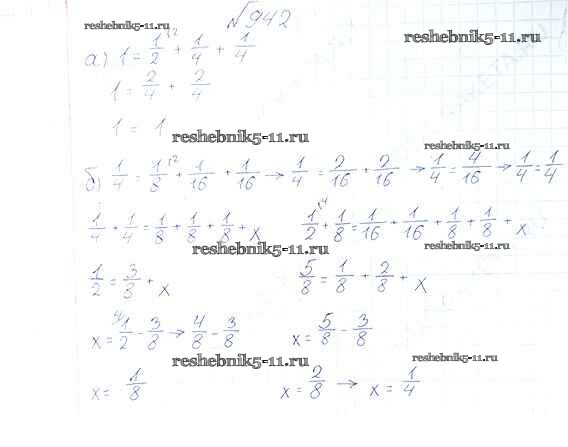 №942
reshebnik5-11.ru
reshebnik5-11.ru
а) 1 = 1/2 ·2 + 1/4 + 1/4
1 = 2/4 + 2/4
1 = 1
reshebnik5-11.ru
reshebnik5-11.ru
б) 1/4 = 1/8 ·2 + 1/16 + 1/16 → 1/4 = 2/16 + 2/16 → 1/4 = 4/16 → 1/4 = 1/4
1/4 + 1/4 = 1/8 + 1/8 + 1/8 + x
1/2 ·4 + 1/8 = 1/16 + 1/16 + 1/8 + 1/8 + x
reshebnik5-11.ru
reshebnik5-11.ru
1/2 = 3/8 + x
5/8 = 1/8 + 2/8 + x
x = 4/ 1/2 - 3/8 → 4/8 - 3/8
x = 5/8 - 3/8
reshebnik5-11.ru
reshebnik5-11.ru
x = 1/8
x = 2/8 → x = 1/4